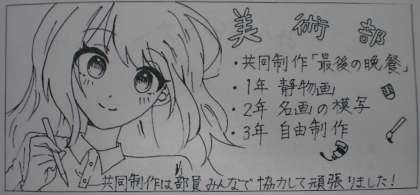 美術部
・共同制作「最後の晩餐」
・1年 静物画
・2年 名画の模写
・3年 自由制作
共同制作は部員みんなで協力して頑張りました!